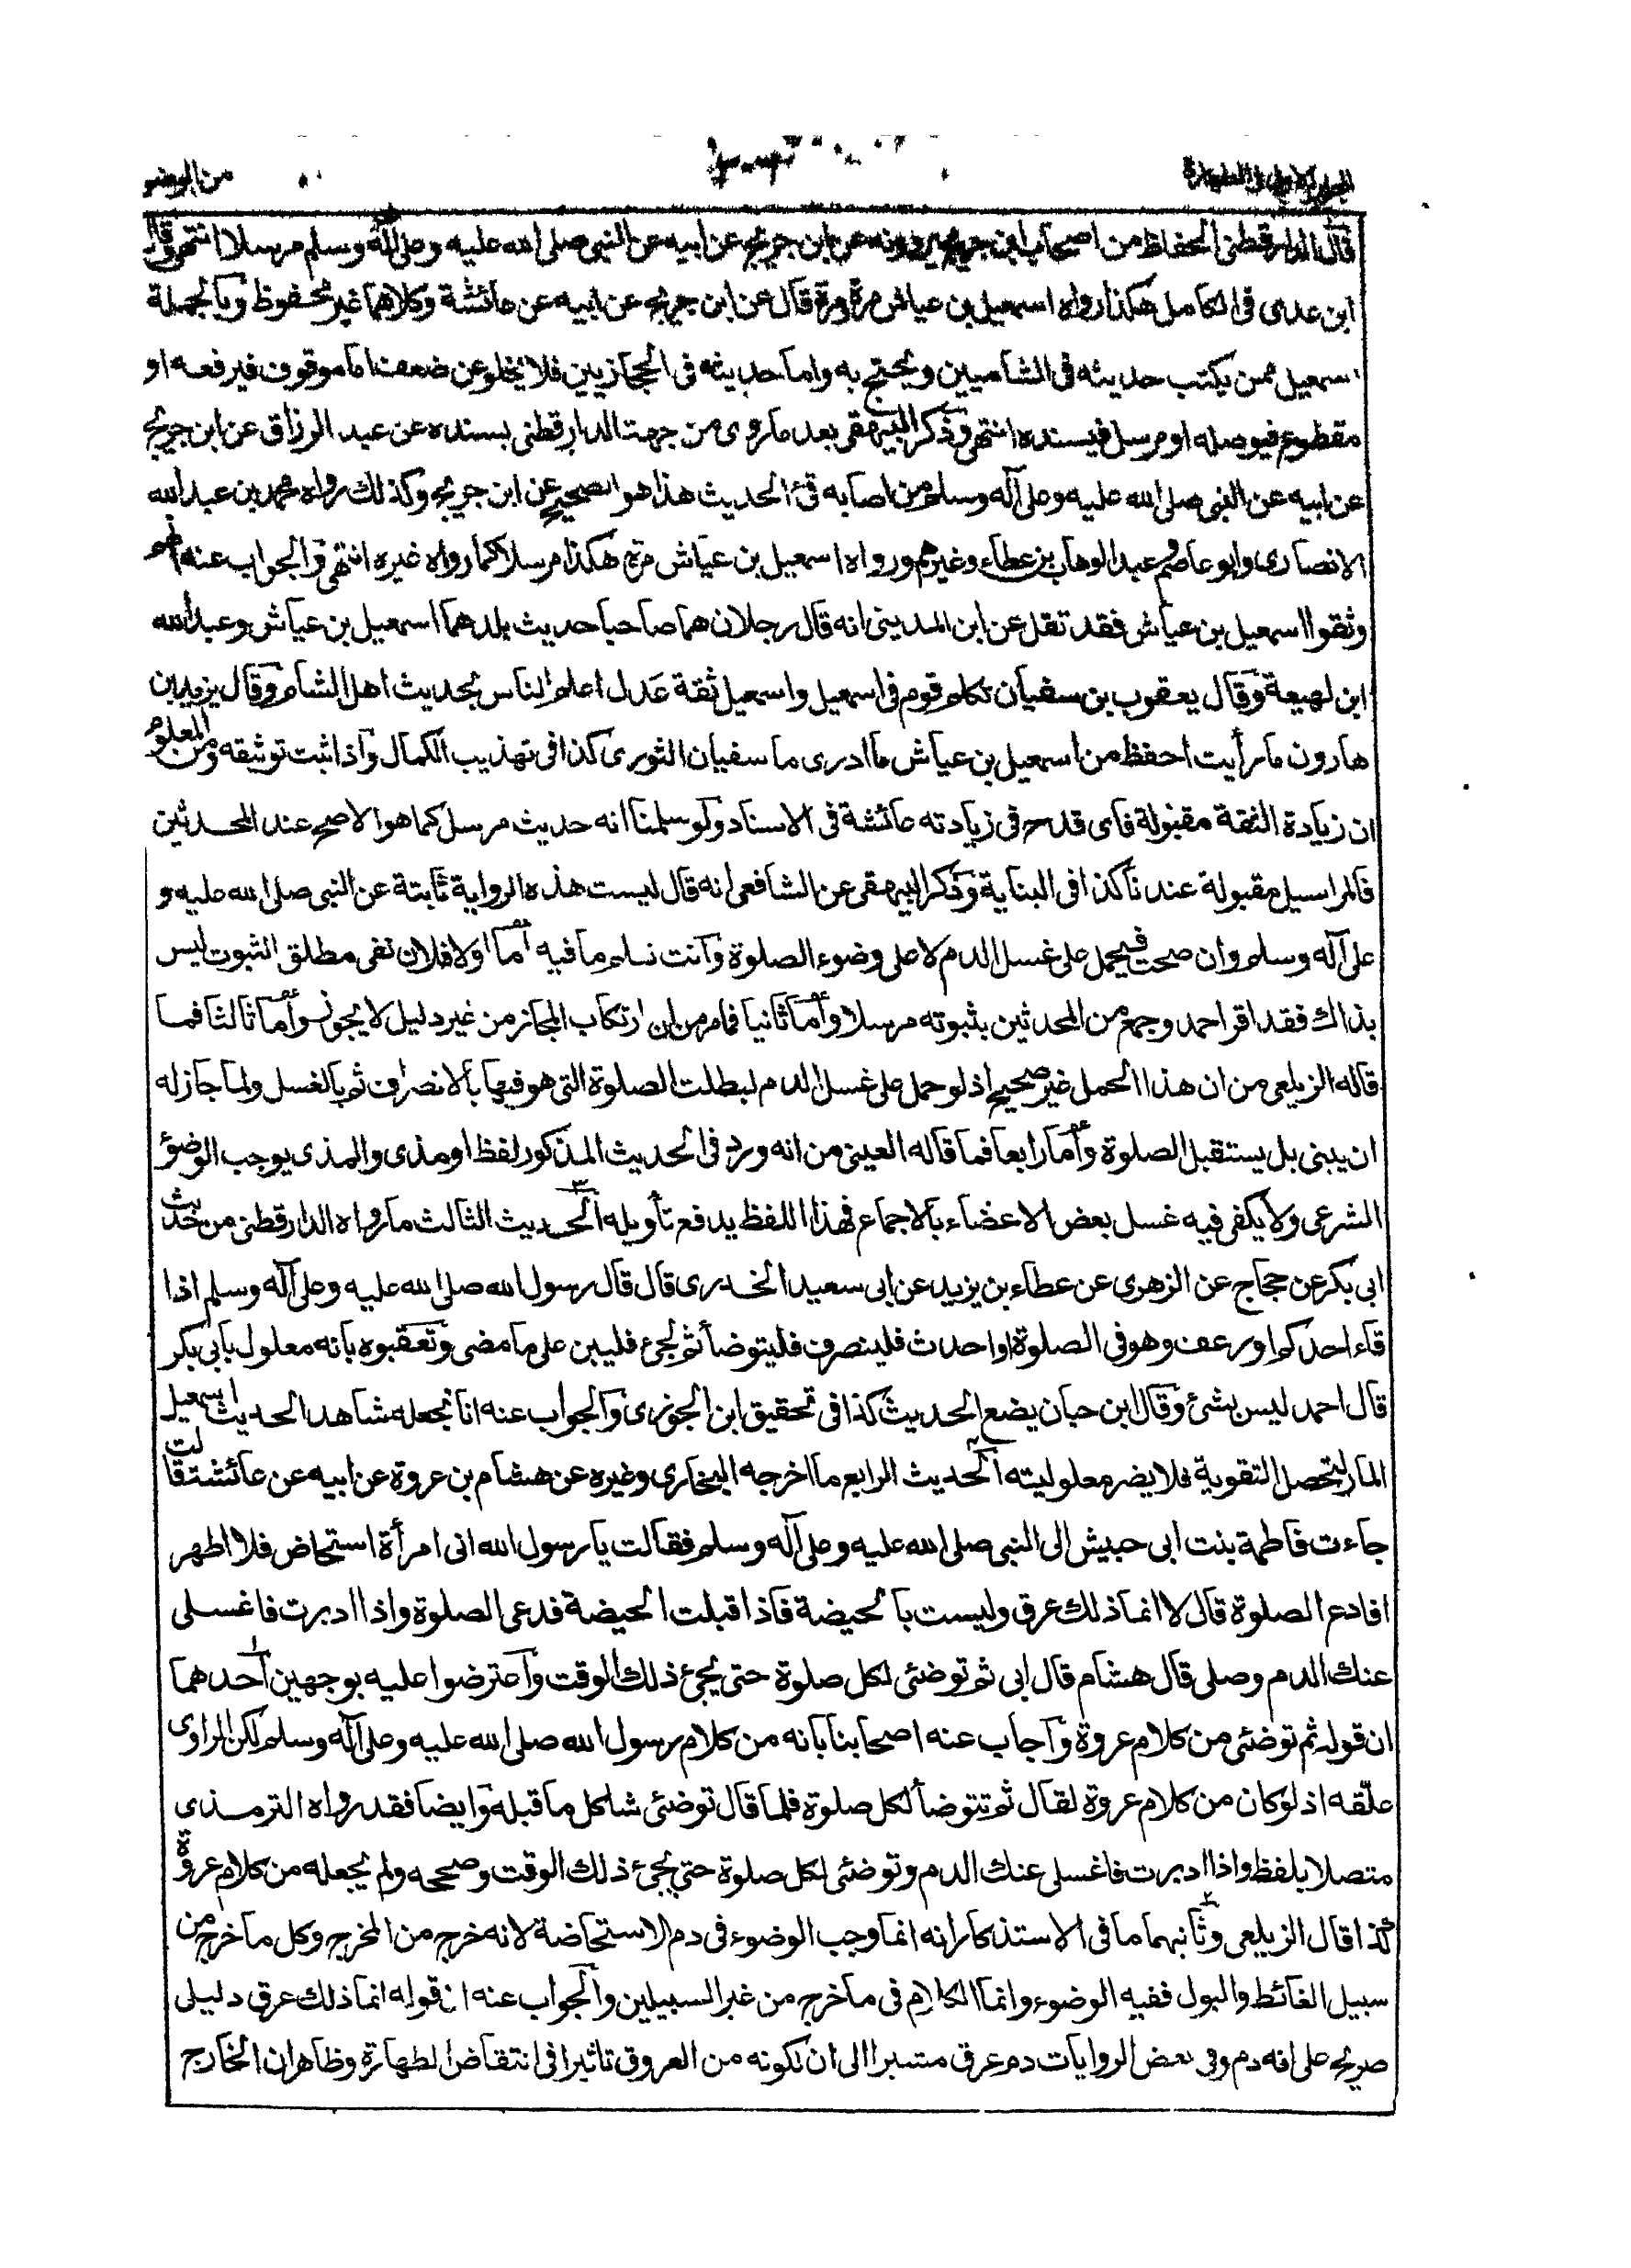 من الوضو
قال الدارقطنى الحفاظ من اصحاب ابن جريج يروونه عن ابن جريج عن ابيه عن النبى صلى الله عليه وعلى آله وسلم مرسلا انتهى وقال
ابن عدى فى الكامل هكذا رواه اسمعيل بن عياش مرة ومرة قال عن ابن جريج عن ابيه عن عائشة وكلاهما غير محفوظ وبالجملة
اسمعيل ممن يكتب حديثه فى الشاميين ويحتج به واما حديثه فى الحجازيين فلا يخلو عن ضعف اما موقوف فيرفعه او
مقطوع فيوصله او مرسل فيسنده انتهى وذكر البيهقى بعد ما روى من جهت الدارقطنى بسنده عن عبد الرزاق عن ابن جريج
عن ابيه عن النبى صلى الله عليه وعلى آله وسلم من اصابه قئ الحديث هذا هو الصحيح عن ابن جريج وكذلك رواه محمد بن عبد الله
الانصارى وابو عاصم وعبد الوهاب بن عطاء وغيرهم ورواه اسمعيل بن عياش مرة هكذا مرسلا كما رواه غيره انتهى والجواب عنه انهم
وثقوا اسمعيل بن عياش فقد نقل عن ابن المدينى انه قال رجلان هما صاحبا حديث بلدهما اسمعيل بن عياش وعبد الله
ابن لهيعة وقال يعقوب بن سفيان تكلم قوم فى اسمعيل واسمعيل ثقة عدل اعلم الناس بحديث اهل الشام وقال يزيد بن
هارون ما رأيت احفظ من اسمعيل بن عياش ما ادرى ما سفيان الثورى كذا فى تهذيب الكمال واذا ثبت توثيقه ومن المعلوم
ان زيادة الثقة مقبولة فاى قدح فى زيادته عائشة فى الاسناد ولو سلمنا انه حديث مرسل كما هو الاصح عند المحدثين
فالمراسيل مقبولة عندنا كذا فى البناية وذكر البيهقى عن الشافعى انه قال ليست هذه الرواية ثابتة عن النبى صلى الله عليه و
على آله وسلم وان صحت فيحمل على غسل الدم لا على وضوء الصلوة وانت تسلم ما فيه اما اولا فلان نفى مطلق الثبوت ليس
بذاك فقد اقر احمد وجمع من المحدثين بثبوته مرسلا واما ثانيا فما مر من ان ارتكاب المجاز من غير دليل لا يجوز واما ثالثا فما
قاله الزيلعى من ان هذا الحمل غير صحيح اذ لو حمل على غسل الدم لبطلت الصلوة التى هو فيها بالانصراف ثم بالغسل ولما جاز له
ان يبنى بل يستقبل الصلوة واما رابعا فما قاله العينى من انه ورد فى الحديث المذكور لفظ او مذى والمذى يوجب الوضوء
الشرعى ولا يكفى فيه غسل بعض الاعضاء بالاجماع فهذا اللفظ يدفع تأويله الحديث الثالث ما رواه الدارقطنى من حديث
ابى بكر عن حجاج عن الزهرى عن عطاء بن يزيد عن ابى سعيد الخدرى قال قال رسول الله صلى الله عليه وعلى آله وسلم اذا
قاء احدكم او رعف وهو فى الصلوة او احدث فلينصرف فليتوضأ ثم ليجئ فليبن على ما مضى وتعقبوه بانه معلول بابى بكر
قال احمد ليس بشئ وقال ابن حبان يضع الحديث كذا فى تحقيق ابن الجوزى والجواب عنه انا نجعله شاهدا لحديث اسمعيل
المار لتحصل التقوية فلا يضر معلوليته الحديث الرابع ما اخرجه البخارى وغيره عن هشام بن عروة عن ابيه عن عائشة قالت
جاءت فاطمة بنت ابى حبيش الى النبى صلى الله عليه وعلى آله وسلم فقالت يا رسول الله انى امرأة استحاض فلا اطهر
افادع الصلوة قال لا انما ذلك عرق وليست بالحيضة فاذا قبلت الحيضة فدعى الصلوة واذا ادبرت فاغسلى
عنك الدم وصلى قال هشام قال ابى ثم توضئى لكل صلوة حتى يجئ ذلك الوقت واعترضوا عليه بوجهين احدهما
ان قوله ثم توضئى من كلام عروة واجاب عنه اصحابنا بانه من كلام رسول الله صلى الله عليه وعلى آله وسلم لكن الراوى
علقه اذ لو كان من كلام عروة لقال ثم تتوضأ لكل صلوة فلما قال توضئى شاكل ما قبله وايضا فقد رواه الترمذى
متصلا بلفظ واذا ادبرت فاغسلى عنك الدم وتوضئى لكل صلوة حتى يجئ ذلك الوقت وصححه ولم يجعله من كلام عروة
كذا قال الزيلعى وثانيهما ما فى الاستذكار انه انما وجب الوضوء فى دم الاستحاضة لانه خرج من المخرج وكل ما خرج من
سبيل الغائط والبول ففيه الوضوء وانما الكلام فى ما خرج من غير السبيلين والجواب عنه ان قوله انما ذلك عرق دليلى
صريح على انه دم وفى بعض الروايات دم عرق مشيرا الى ان لكونه من العروق تاثيرا فى انتقاض الطهارة وظاهر ان الخارج